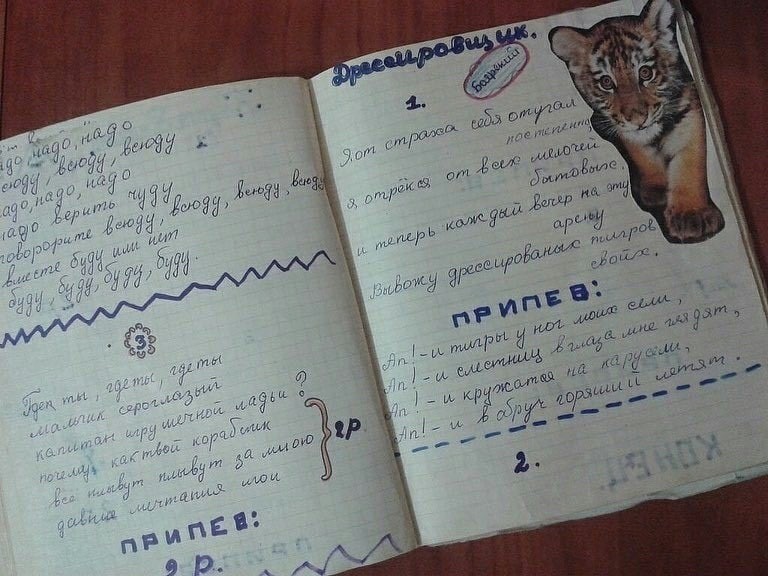 надо, надо, надо
всюду, всюду, всюду
надо, надо, надо
надо верить чуду
говорорите всюду, всюду, всюду, всюду
вместе буду или нет
буду, буду, буду, буду.
3
Где ты, где ты, где ты
мальчик сероглазый
капитан игрушечной ладьи?
почему как твой кораблик
всё плывут плывут за мною
давние мечтания мои
2р
ПРИПЕВ:
2р.
Дрессировщик.
Боярский
1.
Я от страха себя отугал
постепенно,
я отрёкся от всех мелочей
бытовых.
и теперь каждый вечер на эту
арену
Вывожу дрессированых тигров
своих.
ПРИПЕВ:
Ап! - и тигры у ног моих сели,
Ап! - и с лестниц в глаза мне глядят,
Ап! - и кружатся на карусели,
Ап! - и в обруч горящий летят.
2.
КОНЕЦ